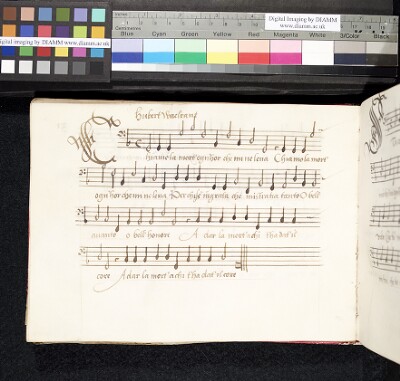 Digital Imaging by DIAMM
www.diamm.ac.uk
Centimetres
Blue Cyan Green Yellow Red Magenta White 3/Color Black
Digital Imaging by DIAMM
www.diamm.ac.uk
Hubert Waelrant
Chiamo la mort' ogn'hor che mi ne lena Chiamo la mort'
ogn'hor che mi ne lena Per che tanto O bell'
O bell' honora A dar la mort' a chi tha dat' il
core A dar la mort' a chi tha dat' il core